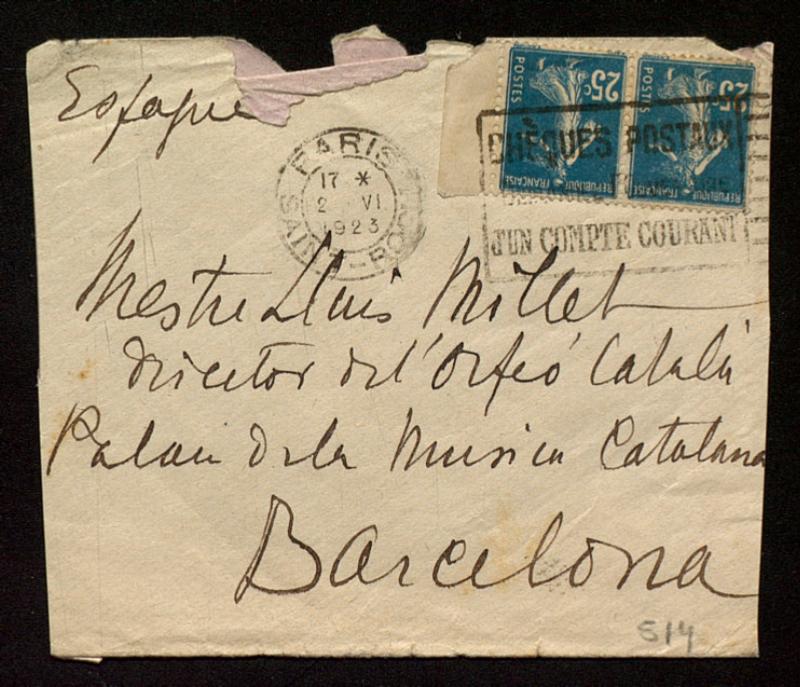 Espagne
PARIS
17 *
2 VI
1923
SAINT-ROCH
25c 25c
POSTES POSTES
REPUBLIQUE FRANÇAISE REPUBLIQUE FRANÇAISE
CHÈQUES POSTAUX
D'UN COMPTE COURANT
Mestre Lluis Millet
director de l'Orfeó Català
Palau de la Musica Catalana
Barcelona
514